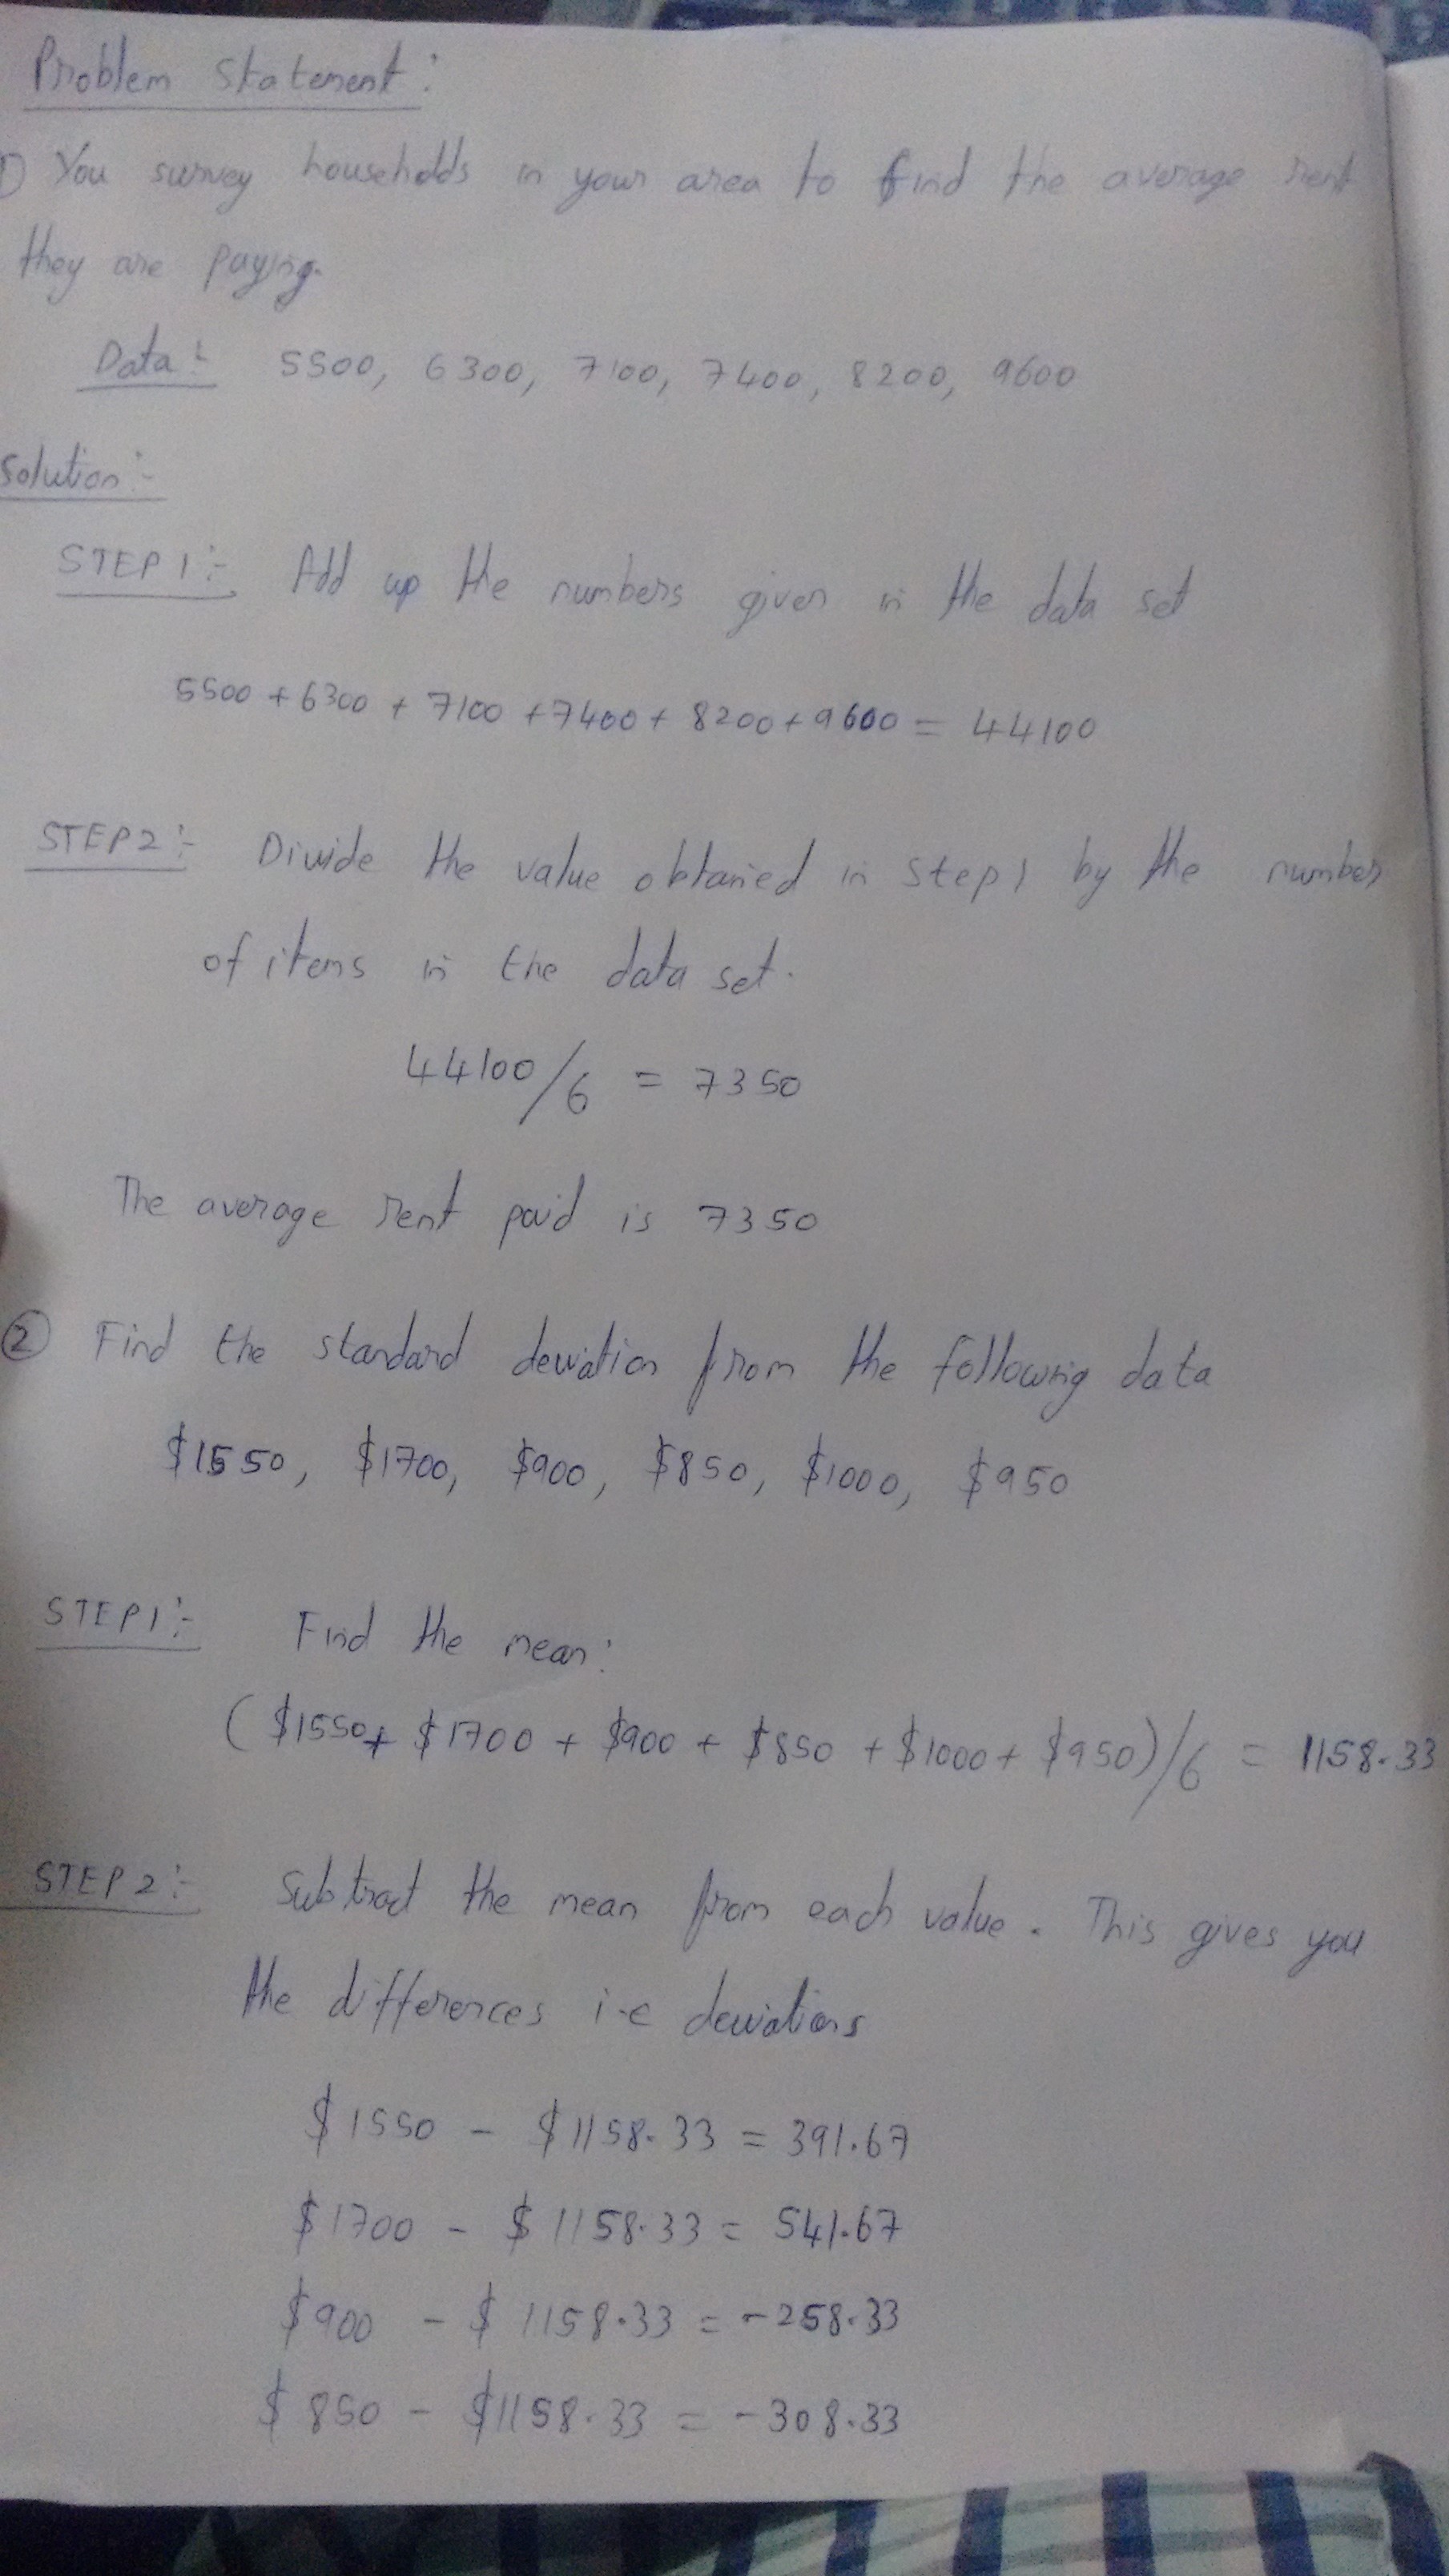 Problem statement:
1) You survey households in your area to find the average rent
they are paying.
Data:- 5500, 6300, 7100, 7400, 8200, 9600
Solution:-
STEP 1:- Add up the numbers given in the data set
5500 + 6300 + 7100 + 7400 + 8200 + 9600 = 44100
STEP 2:- Divide the value obtained in step 1 by the number
of items in the data set.
44100/6 = 7350
The average rent paid is 7350
② Find the standard deviation from the following data
$1550, $1700, $900, $850, $1000, $950
STEP 1:- Find the mean:
($1550 + $1700 + $900 + $850 + $1000 + $950)/6 = 1158.33
STEP 2:- Subtract the mean from each value. This gives you
the differences i.e deviations
$1550 - $1158.33 = 391.67
$1700 - $1158.33 = 541.67
$900 - $1158.33 = -258.33
$850 - $1158.33 = -308.33